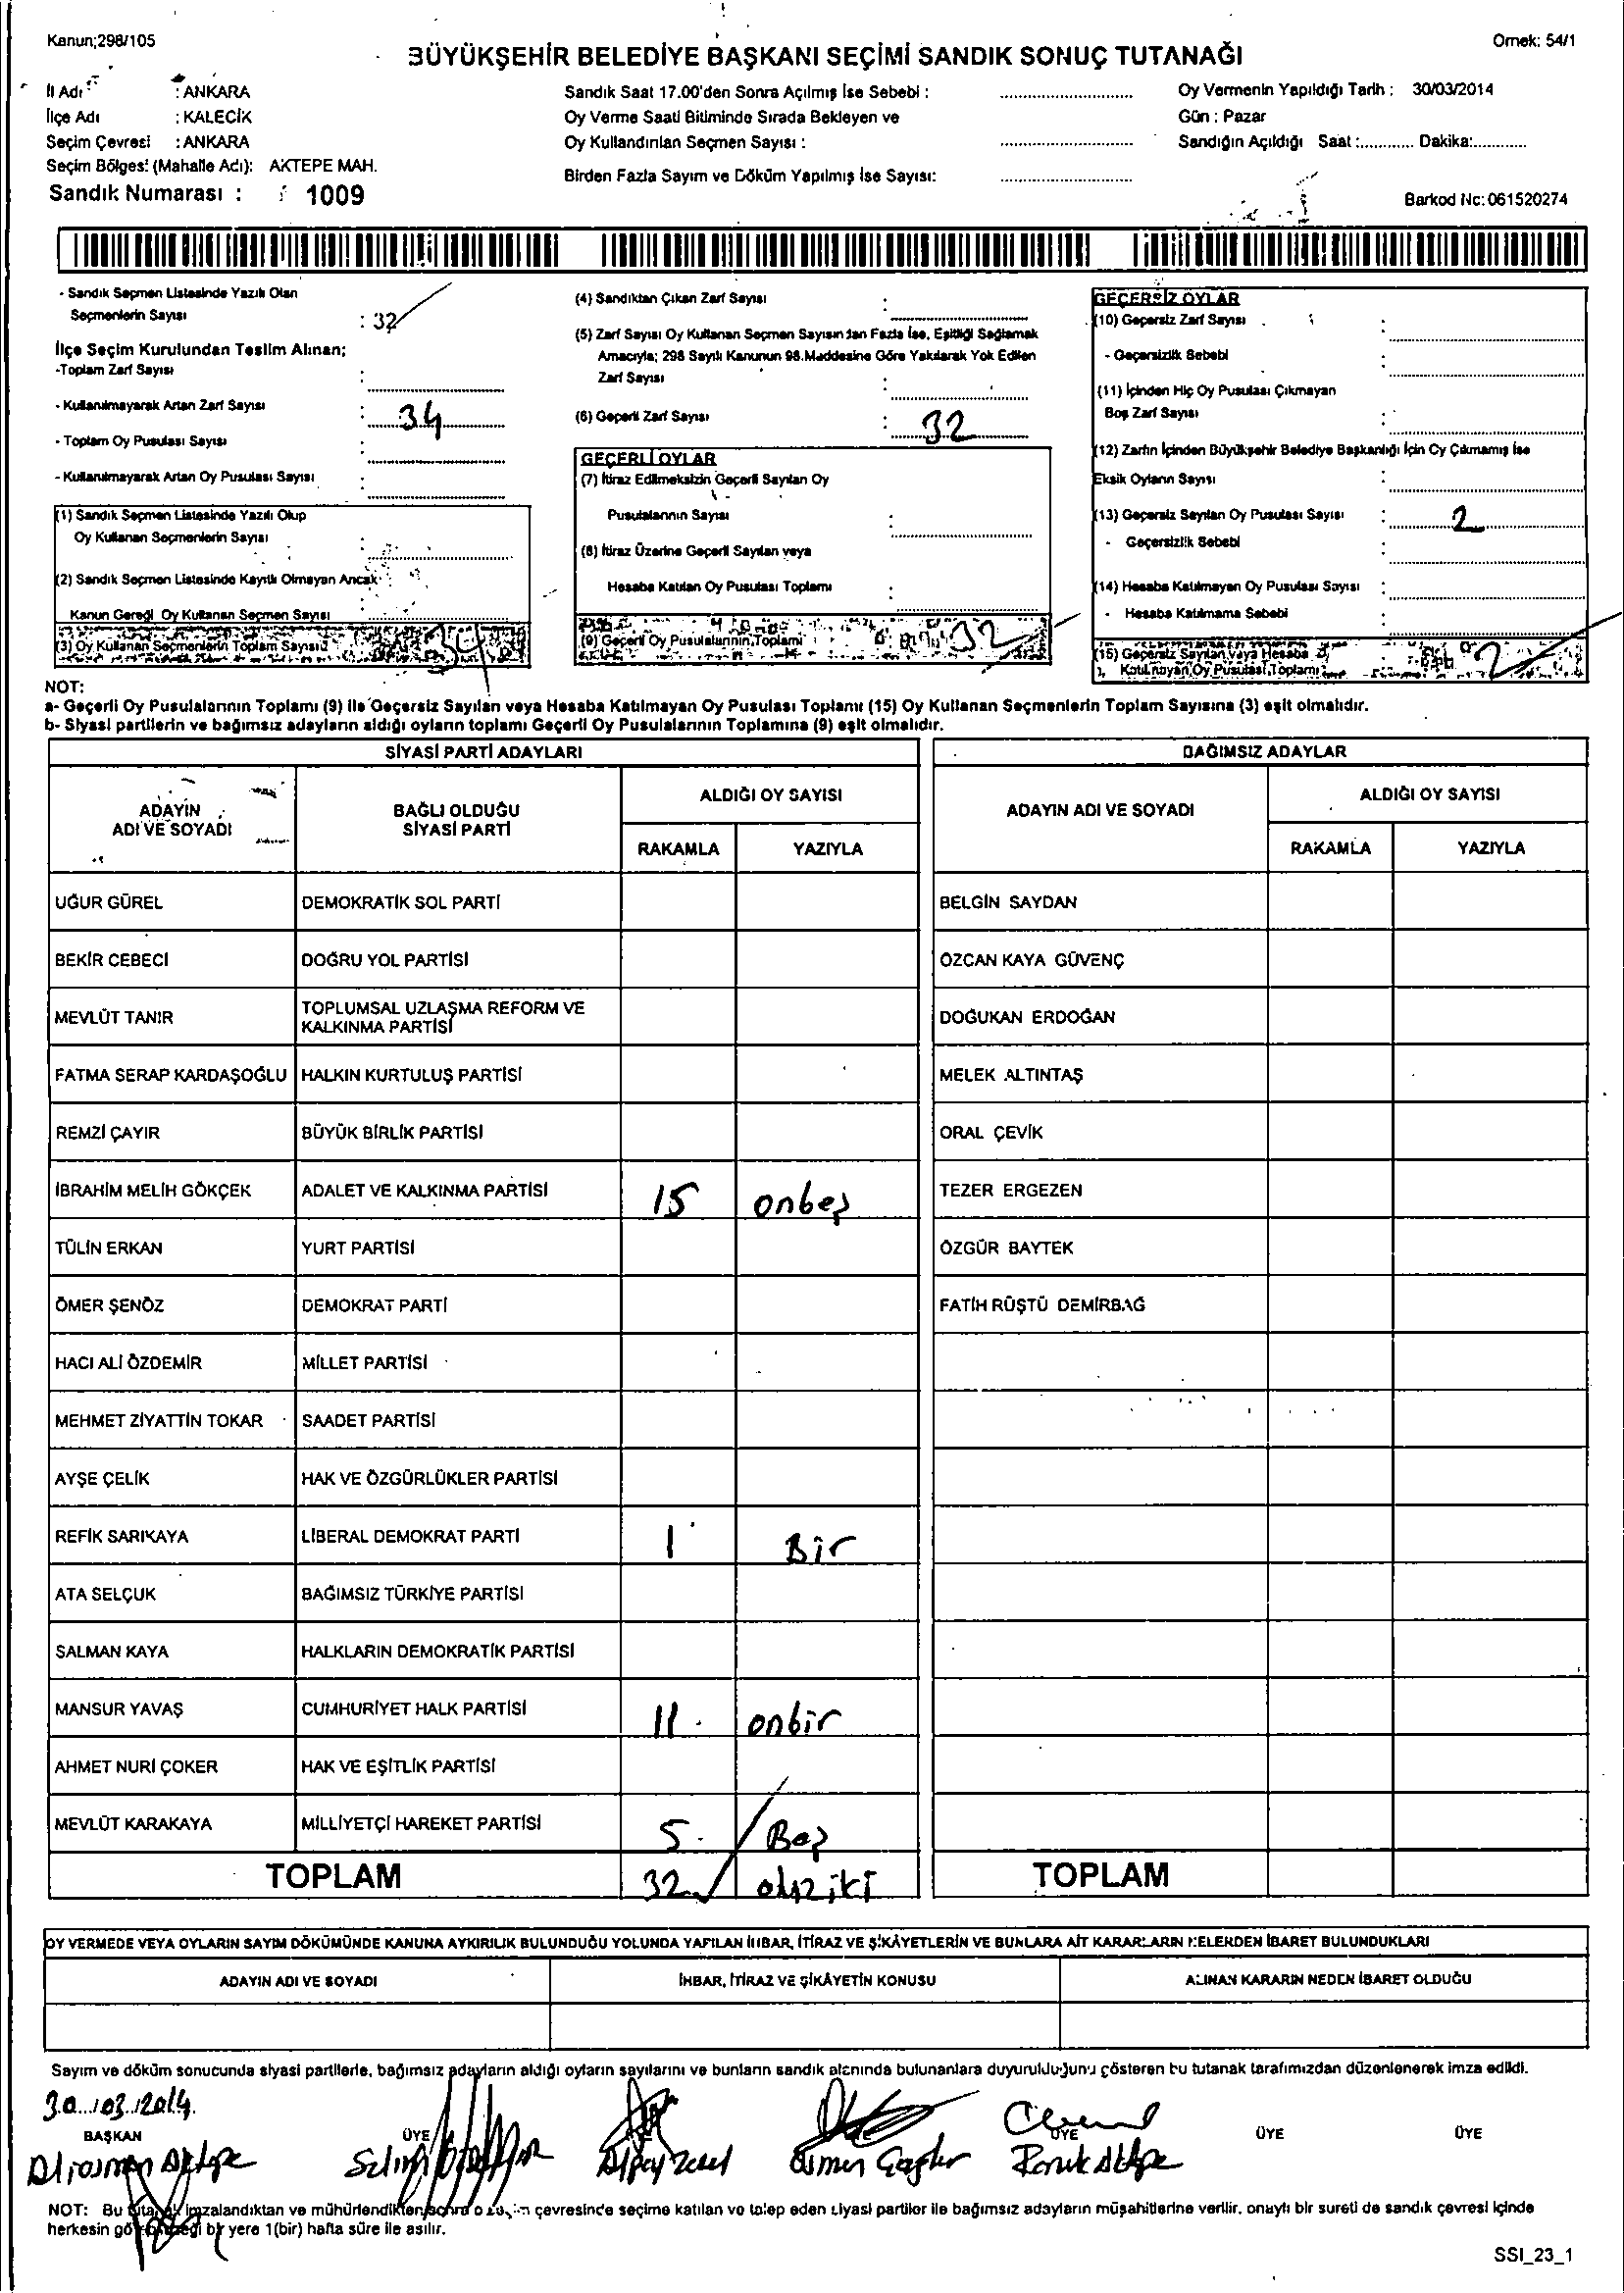 Kanun;298/105
BÜYÜKŞEHİR BELEDİYE BAŞKANI SEÇİMİ SANDIK SONUÇ TUTANAĞI
Örnek: 54/1
İl Adı : ANKARA
İlçe Adı : KALECİK
Seçim Çevresi : ANKARA
Seçim Bölgesi (Mahalle Adı): AKTEPE MAH.
Sandık Numarası : 1009
Sandık Saat 17.00'den Sonra Açılmış İse Sebebi :
Oy Verme Saati Bitiminde Sırada Bekleyen ve
Oy Kullandırılan Seçmen Sayısı :
Birden Fazla Sayım ve Döküm Yapılmış İse Sayısı:
Oy Vermenin Yapıldığı Tarih : 30/03/2014
Gün : Pazar
Sandığın Açıldığı Saat :............ Dakika:............
Barkod No: 061520274
- Sandık Seçmen Listesinde Yazılı Olan
Seçmenlerin Sayısı : 32
İlçe Seçim Kurulundan Teslim Alınan;
-Toplam Zarf Sayısı :
- Kullanılmayarak Artan Zarf Sayısı : 34
- Toplam Oy Pusulası Sayısı :
- Kullanılmayarak Artan Oy Pusulası Sayısı :
(1) Sandık Seçmen Listesinde Yazılı Olup
Oy Kullanan Seçmenlerin Sayısı :
(2) Sandık Seçmen Listesinde Kayıtlı Olmayan Ancak
Kanun Gereği Oy Kullanan Seçmen Sayısı
(3) Oy Kullanan Seçmenlerin Toplam Sayısı 34
(4) Sandıktan Çıkan Zarf Sayısı :
(5) Zarf Sayısı Oy Kullanan Seçmen Sayısından Fazla İse, Eşitliği Sağlamak
Amacıyla; 298 Sayılı Kanunun 98.Maddesine Göre Yakılarak Yok Edilen
Zarf Sayısı :
(6) Geçerli Zarf Sayısı : 32
GEÇERLİ OYLAR
(7) İtiraz Edilmeksizin Geçerli Sayılan Oy
Pusulalarının Sayısı :
(8) İtiraz Üzerine Geçerli Sayılan veya
Hesaba Katılan Oy Pusulası Toplamı :
(9) Geçerli Oy Pusulalarının Toplamı 32
GEÇERSİZ OYLAR
(10) Geçersiz Zarf Sayısı :
- Geçersizlik Sebebi :
(11) İçinden Hiç Oy Pusulası Çıkmayan
Boş Zarf Sayısı :
(12) Zarfın İçinden Büyükşehir Belediye Başkanlığı İçin Oy Çıkmamış İse
Eksik Oyların Sayısı :
(13) Geçersiz Sayılan Oy Pusulası Sayısı : 2
- Geçersizlik Sebebi :
(14) Hesaba Katılmayan Oy Pusulası Sayısı :
- Hesaba Katılmama Sebebi :
(15) Geçersiz Sayılan veya Hesaba
Katılmayan Oy Pusulası Toplamı 2
NOT:
a- Geçerli Oy Pusulalarının Toplamı (9) ile Geçersiz Sayılan veya Hesaba Katılmayan Oy Pusulası Toplamı (15) Oy Kullanan Seçmenlerin Toplam Sayısına (3) eşit olmalıdır.
b- Siyasi partilerin ve bağımsız adayların aldığı oyların toplamı Geçerli Oy Pusulalarının Toplamına (9) eşit olmalıdır.
SİYASİ PARTİ ADAYLARI
ADAYIN ADI VE SOYADI
BAĞLI OLDUĞU SİYASİ PARTİ
ALDIĞI OY SAYISI
RAKAMLA YAZIYLA
UĞUR GÜREL DEMOKRATİK SOL PARTİ
BEKİR CEBECİ DOĞRU YOL PARTİSİ
MEVLÜT TANIR TOPLUMSAL UZLAŞMA REFORM VE KALKINMA PARTİSİ
FATMA SERAP KARDAŞOĞLU HALKIN KURTULUŞ PARTİSİ
REMZİ ÇAYIR BÜYÜK BİRLİK PARTİSİ
İBRAHİM MELİH GÖKÇEK ADALET VE KALKINMA PARTİSİ 15 onbeş
TÜLİN ERKAN YURT PARTİSİ
ÖMER ŞENÖZ DEMOKRAT PARTİ
HACI ALİ ÖZDEMİR MİLLET PARTİSİ
MEHMET ZİYATTİN TOKAR SAADET PARTİSİ
AYŞE ÇELİK HAK VE ÖZGÜRLÜKLER PARTİSİ
REFİK SARIKAYA LİBERAL DEMOKRAT PARTİ 1 Bir
ATA SELÇUK BAĞIMSIZ TÜRKİYE PARTİSİ
SALMAN KAYA HALKLARIN DEMOKRATİK PARTİSİ
MANSUR YAVAŞ CUMHURİYET HALK PARTİSİ 11 onbir
AHMET NURİ ÇOKER HAK VE EŞİTLİK PARTİSİ
MEVLÜT KARAKAYA MİLLİYETÇİ HAREKET PARTİSİ 5 Beş
TOPLAM 32 otuziki
BAĞIMSIZ ADAYLAR
ADAYIN ADI VE SOYADI
ALDIĞI OY SAYISI
RAKAMLA YAZIYLA
BELGİN SAYDAN
ÖZCAN KAYA GÜVENÇ
DOĞUKAN ERDOĞAN
MELEK ALTINTAŞ
ORAL ÇEVİK
TEZER ERGEZEN
ÖZGÜR BAYTEK
FATİH RÜŞTÜ DEMİRBAĞ
TOPLAM
OY VERMEDE VEYA OYLARIN SAYIM DÖKÜMÜNDE KANUNA AYKIRILIK BULUNDUĞU YOLUNDA YAPILAN İHBAR, İTİRAZ VE ŞİKÂYETLERİN VE BUNLARA AİT KARARLARIN NELERDEN İBARET BULUNDUKLARI
ADAYIN ADI VE SOYADI
İHBAR, İTİRAZ VE ŞİKÂYETİN KONUSU
ALINAN KARARIN NEDEN İBARET OLDUĞU
Sayım ve döküm sonucunda siyasi partilerle, bağımsız adayların aldığı oyların sayılarını ve bunların sandık alanında bulunanlara duyurulduğunu gösteren bu tutanak tarafımızdan düzenlenerek imza edildi.
30/03/2014
BAŞKAN ÜYE ÜYE ÜYE ÜYE
NOT: Bu tutanak imzalandıktan ve mühürlendikten sonra o seçim çevresinde seçime katılan ve talep eden siyasi partiler ile bağımsız adayların müşahitlerine verilir. onaylı bir sureti de sandık çevresi içinde
herkesin görebileceği bir yere 1(bir) hafta süre ile asılır.
SSI_23_1